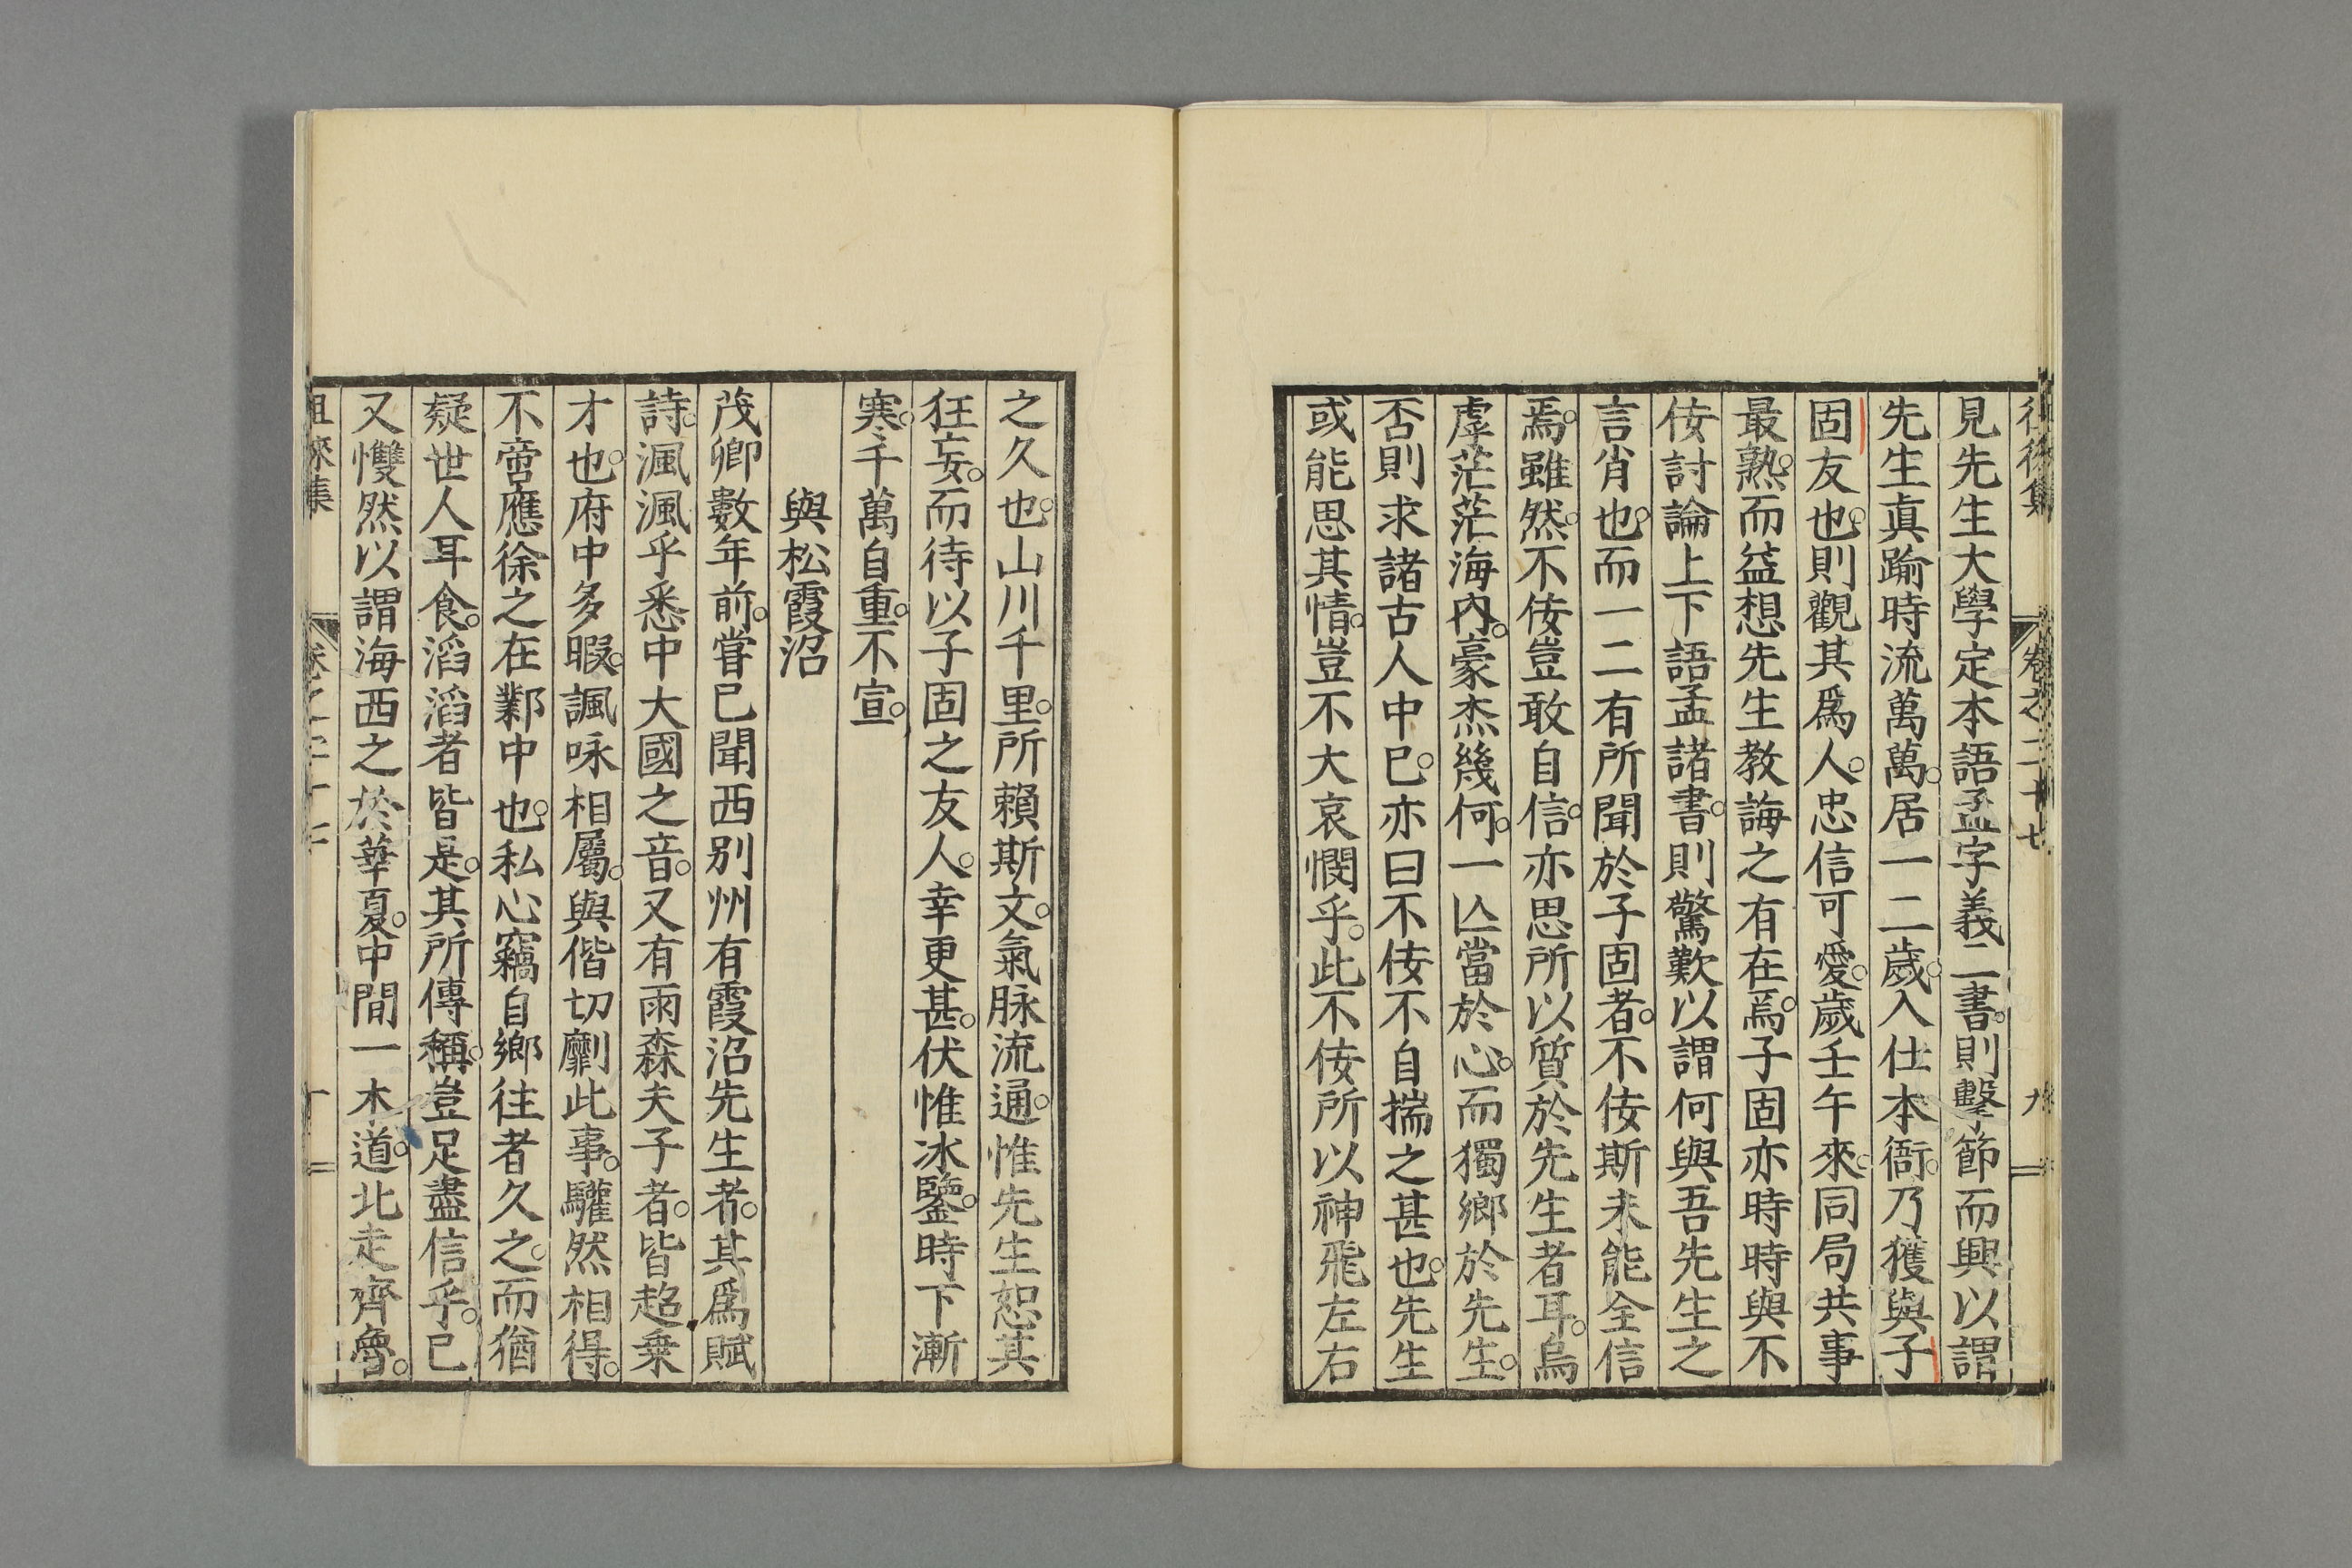 徂徠集 卷之二十七 九
見先生大學定本語孟字義二書。則擊節而興以謂
先生眞踰時流萬萬。居一二歲。入仕本衙。乃獲與子
固友也。則觀其爲人。忠信可愛。歲壬午來。同局共事
最熟。而益想先生教誨之有在焉。子固亦時時與不
佞討論上下語孟諸書。則驚歎以謂何與吾先生之
言肖也。而一二有所聞於子固者。不佞斯未能全信
焉。雖然。不佞豈敢自信。亦思所以質於先生者耳。烏
虖茫茫海內。豪杰幾何。一亾當於心。而獨鄉於先生。
否則求諸古人中已。亦曰不佞不自揣之甚也。先生
或能思其情。豈不大哀憫乎。此不佞所以神飛左右
之久也。山川千里。所賴斯文。氣脉流通。惟先生恕其
狂妄。而待以子固之友人。幸更甚。伏惟冰鑒。時下漸
寒。千萬自重。不宣。
與松霞沼
茂卿數年前。嘗已聞西別州有霞沼先生者。其爲賦
詩。渢渢乎悉中大國之音。又有雨森夫子者。皆超乘
才也。府中多暇。諷咏相屬。與偕切劘此事。驩然相得。
不啻應徐之在鄴中也。私心竊自鄉往者久之。而猶
疑世人耳食。滔滔者皆是。其所傳稱。豈足盡信乎。已
又戄然以謂海西之於華夏。中間一木道。北走齊魯。
徂徠集 卷之二十七 十